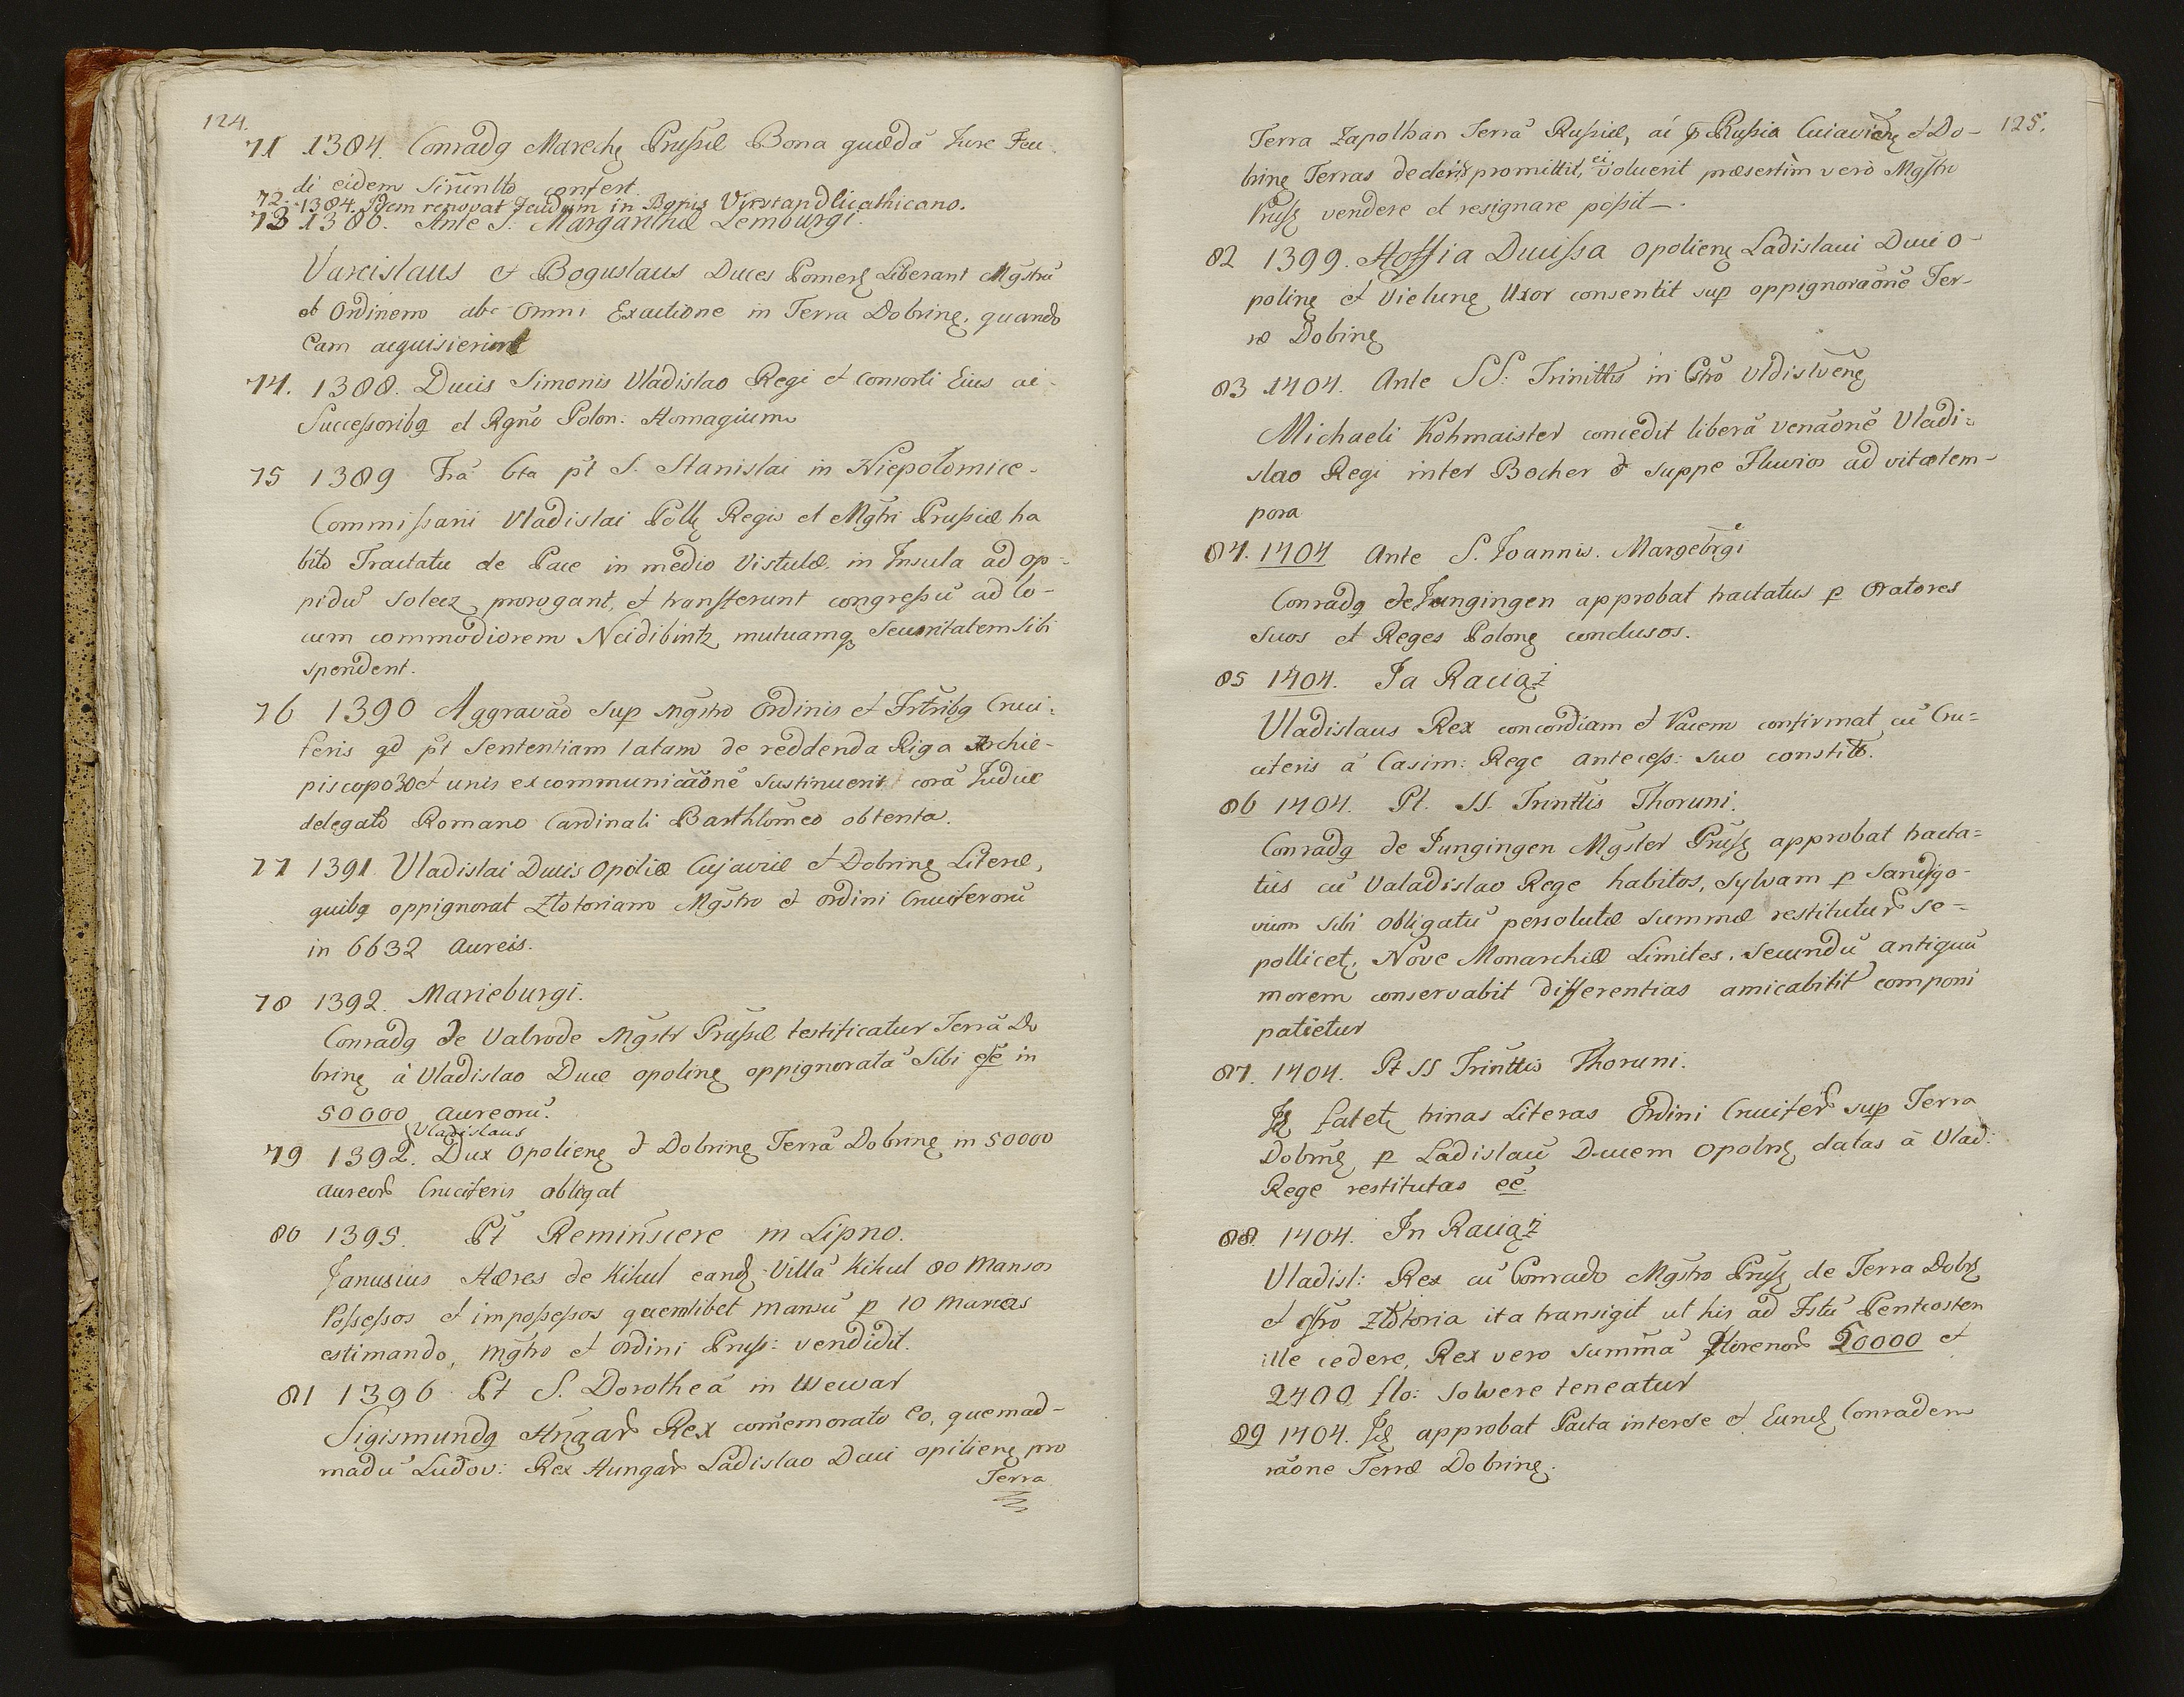 124.
71 1384. Conradq Marchę Prussiæ Bona quædã Jure Feu
di eidem confert.
72. 1384. Idem renovat Feudum in Bonis
73 1386. Ante S. Margarithæ Lemburgi.
Varcislaus et Boguslaus Duces Pomerę Liberant Mgstrũ
et Ordinem ab Omni Exactione in Terra Dobrinę, quando
Eam acquisierint
74. 1388. Ducis Simonis Vladislao Regi et Consorti Eius ac
Successoribq et Rgno Polon: Homagium
75 1389 Fra 6ta pt S. Stanislai in Niepolomice.
Commissarii Vladislai Pollę Regis et Mgtri Prussiæ ha
bito Tractatu de Pace in medio Vistulæ, in Insula ad op-
pidũ Solecz prorogant, et transferunt congressũ ad lo-
cum commodiorem Neidibintz mutuamq Securitatem Sibi
spondent.
76 1390 Aggravao Sup Mgstro Ordinis et Frtribq Cruci:
feris qd pt Sententiam latam de reddenda Riga Archie-
piscopo 30 et unis excommunicãonẽ Sustinuerit corã Judice
delegato Romano Cardinali Barthlomeo obtenta.
77 1391 Vladislai Ducis Opoliæ Cujaviæ et Dobrinę Literæ,
quibq oppignorat Zlotoriam Mgstro et Ordini Cruciferorũ
in 6632 Aureis.
78 1392. Marieburgi.
Conradq de Valrode Mgstr Prussiæ testificatur Terrã Do
brinę à Vladislao Duce opolinę oppignoratã Sibi eẽ in
50000 Aureorũ.
79 1392. Vladislaus Dux Opolienę et Dobrinę Terrã Dobrinę in 50000
Aureor Cruciferis obligat
80 1395. Pt Reminscere in Lipno.
Janusius Hæres de Kikul eand Villã Kikul 80 Mansos
Possessos et impossessos quemlibet Mansũ p 10 Marcas
estimando, Mgtro et Ordini Pruss: vendidit.
81 1396 Pt S. Dorotheã in Wewar
Sigismundq Hngar Rex comemorato Eo, quemad-
madũ Ludov: Rex Hungar Ladislao Duci opilienę pro
Terra
125.
Terra Zapolhan Terrã Russiæ, ai p Russia Cuiavienę et Do-
brinę Terras promittit, ei voluerit præsertim verò Mgstro
Prussę vendere et resignare possit.
82 1399. Hoffia Ducissa Opolienę Ladislaui Duci O-
polinę et Vielunę Uxor consentit sup oppignoraone Ter-
ræ Dobinę
83 1404. Ante SS: Trinittis in Cstro
Michaeli Kohmaister concedit liberã venãonẽ Vladi:
slao Regi inter Bocher et Suppe Fluvios ad vitæ tem-
pora
84. 1404 Ante S. Joannis. Margebrgi
Conradq de Jungingen approbat tractatus p Oratores
Suos et Reges Polonę conclusos.
85 1404. Ia Raciąż
Vladislaus Rex concordiam et Pacem confirmat cũ Cru=
ciferis à Casim: Rege Antecess: Suo constito.
86 1404. Pt. SS. Trinttis Thoruni.
Conradq de Jungingen Mgster Prussę approbat tracta=
tus cũ Valadislao Rege habitos, Sylvam p Sandigo-
vium Sibi Obligatũ persolutæ Summæ restitutur se-
pollicet, Nove Monarchiæ Limites, Secundũ antiquũ
morem conservabit differentias amicabilit componi
patietur
87. 1404. Pt SS Trinttis Thoruni.
Id fatetę trinas Literas Ordini Crucifer sup Terra
Dobrnę p Ladislaũ Ducem Opolnę datas à Vlad:
Rege restitutas eẽ.
88. 1404. In Raciąż
Vladisl: Rex cũ Conrado Mgstro Prussę de Terra Dobrę
et Zlotoria ita transigit ut hic ad Fstũ Pentecosten
ille cedere, Rex vero Summã Florenor 50000 et
2400 flo: Solvere teneatur
89 1404. Id approbat Pacta interese et Eund Conradem
rãone Terræ Dobrinę.